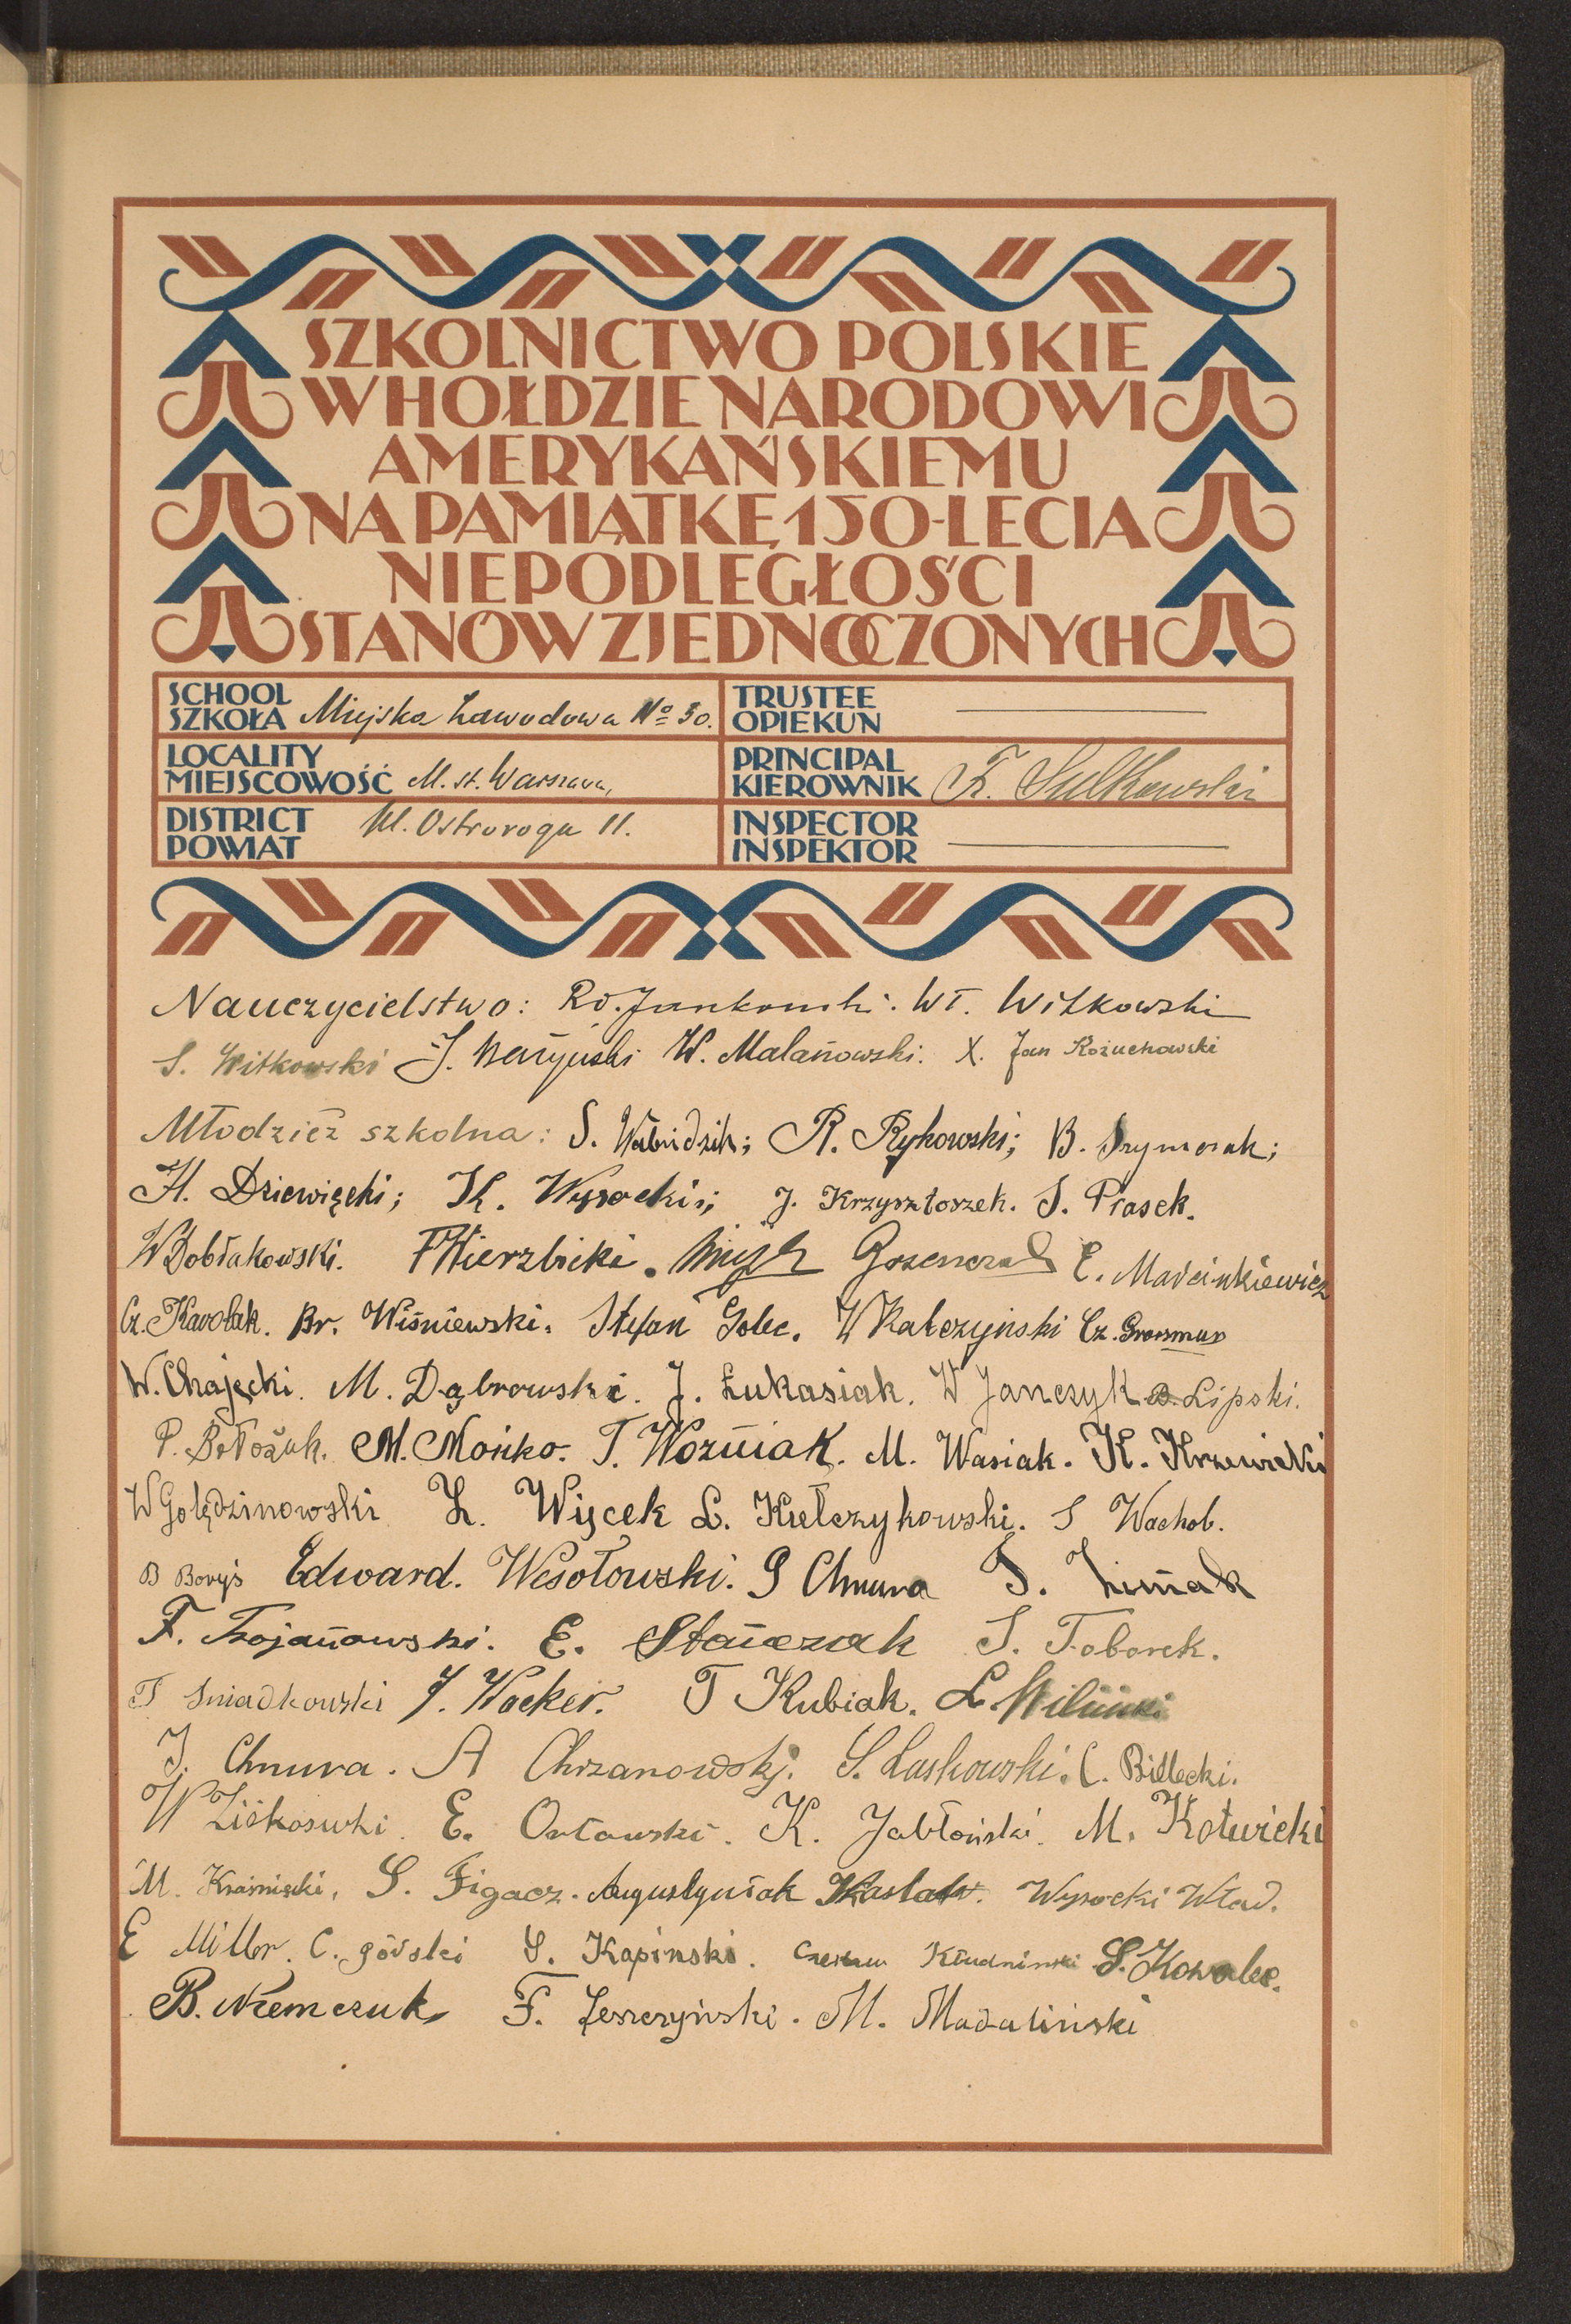 SZKOLNICTWO POLSKIE
W HOŁDZIE NARODOWI
AMERYKAŃSKIEMU
NA PAMIĄTKĘ 150-LECIA
NIEPODLEGŁOŚCI
STANÓW ZJEDNOCZONYCH
SCHOOL
SZKOŁA Miejska Zawodowa No 30.
LOCALITY
MIEJSCOWOŚĆ M. st. Warszawa,
DISTRICT
POWIAT Ul. Ostroroga 11.
TRUSTEE
OPIEKUN
PRINCIPAL
KIEROWNIK F. Sulkowski
INSPECTOR
INSPEKTOR
Nauczycielstwo: Jankowski. Wł. Witkowski
S. Witkowski W. Malanowski. X. Jan Rożuchowski
Młodzież szkolna: S. R. Rykowski; B. Szymczak;
H. Dziewięcki; Wysocki; J. Krzysztoszek. S. Piasek.
W Dobłakowski. F Wierzbicki. E. Marcinkiewicz
Cz. Karolak. Br. Wiśniewski. Stefan Golec. W Kałczyński Cz.
W. Chajęcki. M. Dąbrowski. J. Łukasiak. W Janczyk B. Lipski.
P. M. Mońko. T. Woźniak. M. Wasiak. K. Krzewicki
W Golędzinowski Z. Więcek L. Kiełczykowski. S Wachol.
B Boryś Edward. Wesołowski. S Chmura T. Zimak
F. Trojanowski. E. Stańczak S. Toborek.
T Śniadkowski J. Wacker. T Kubiak. L. Wiliński
J. Chmura. A Chrzanowski. S. Laskowski. C. Billecki.
W E. Orłowski. K. Jabłoński. M. Kotwicki
M. Kraśnicki, S. Figacz. Augustyniak Wysocki Wład.
E Miller. C. górski S. Kapinski. Czesław S. Kowalec.
B. Niemczuk F. Leszczyński. M. Madaliński